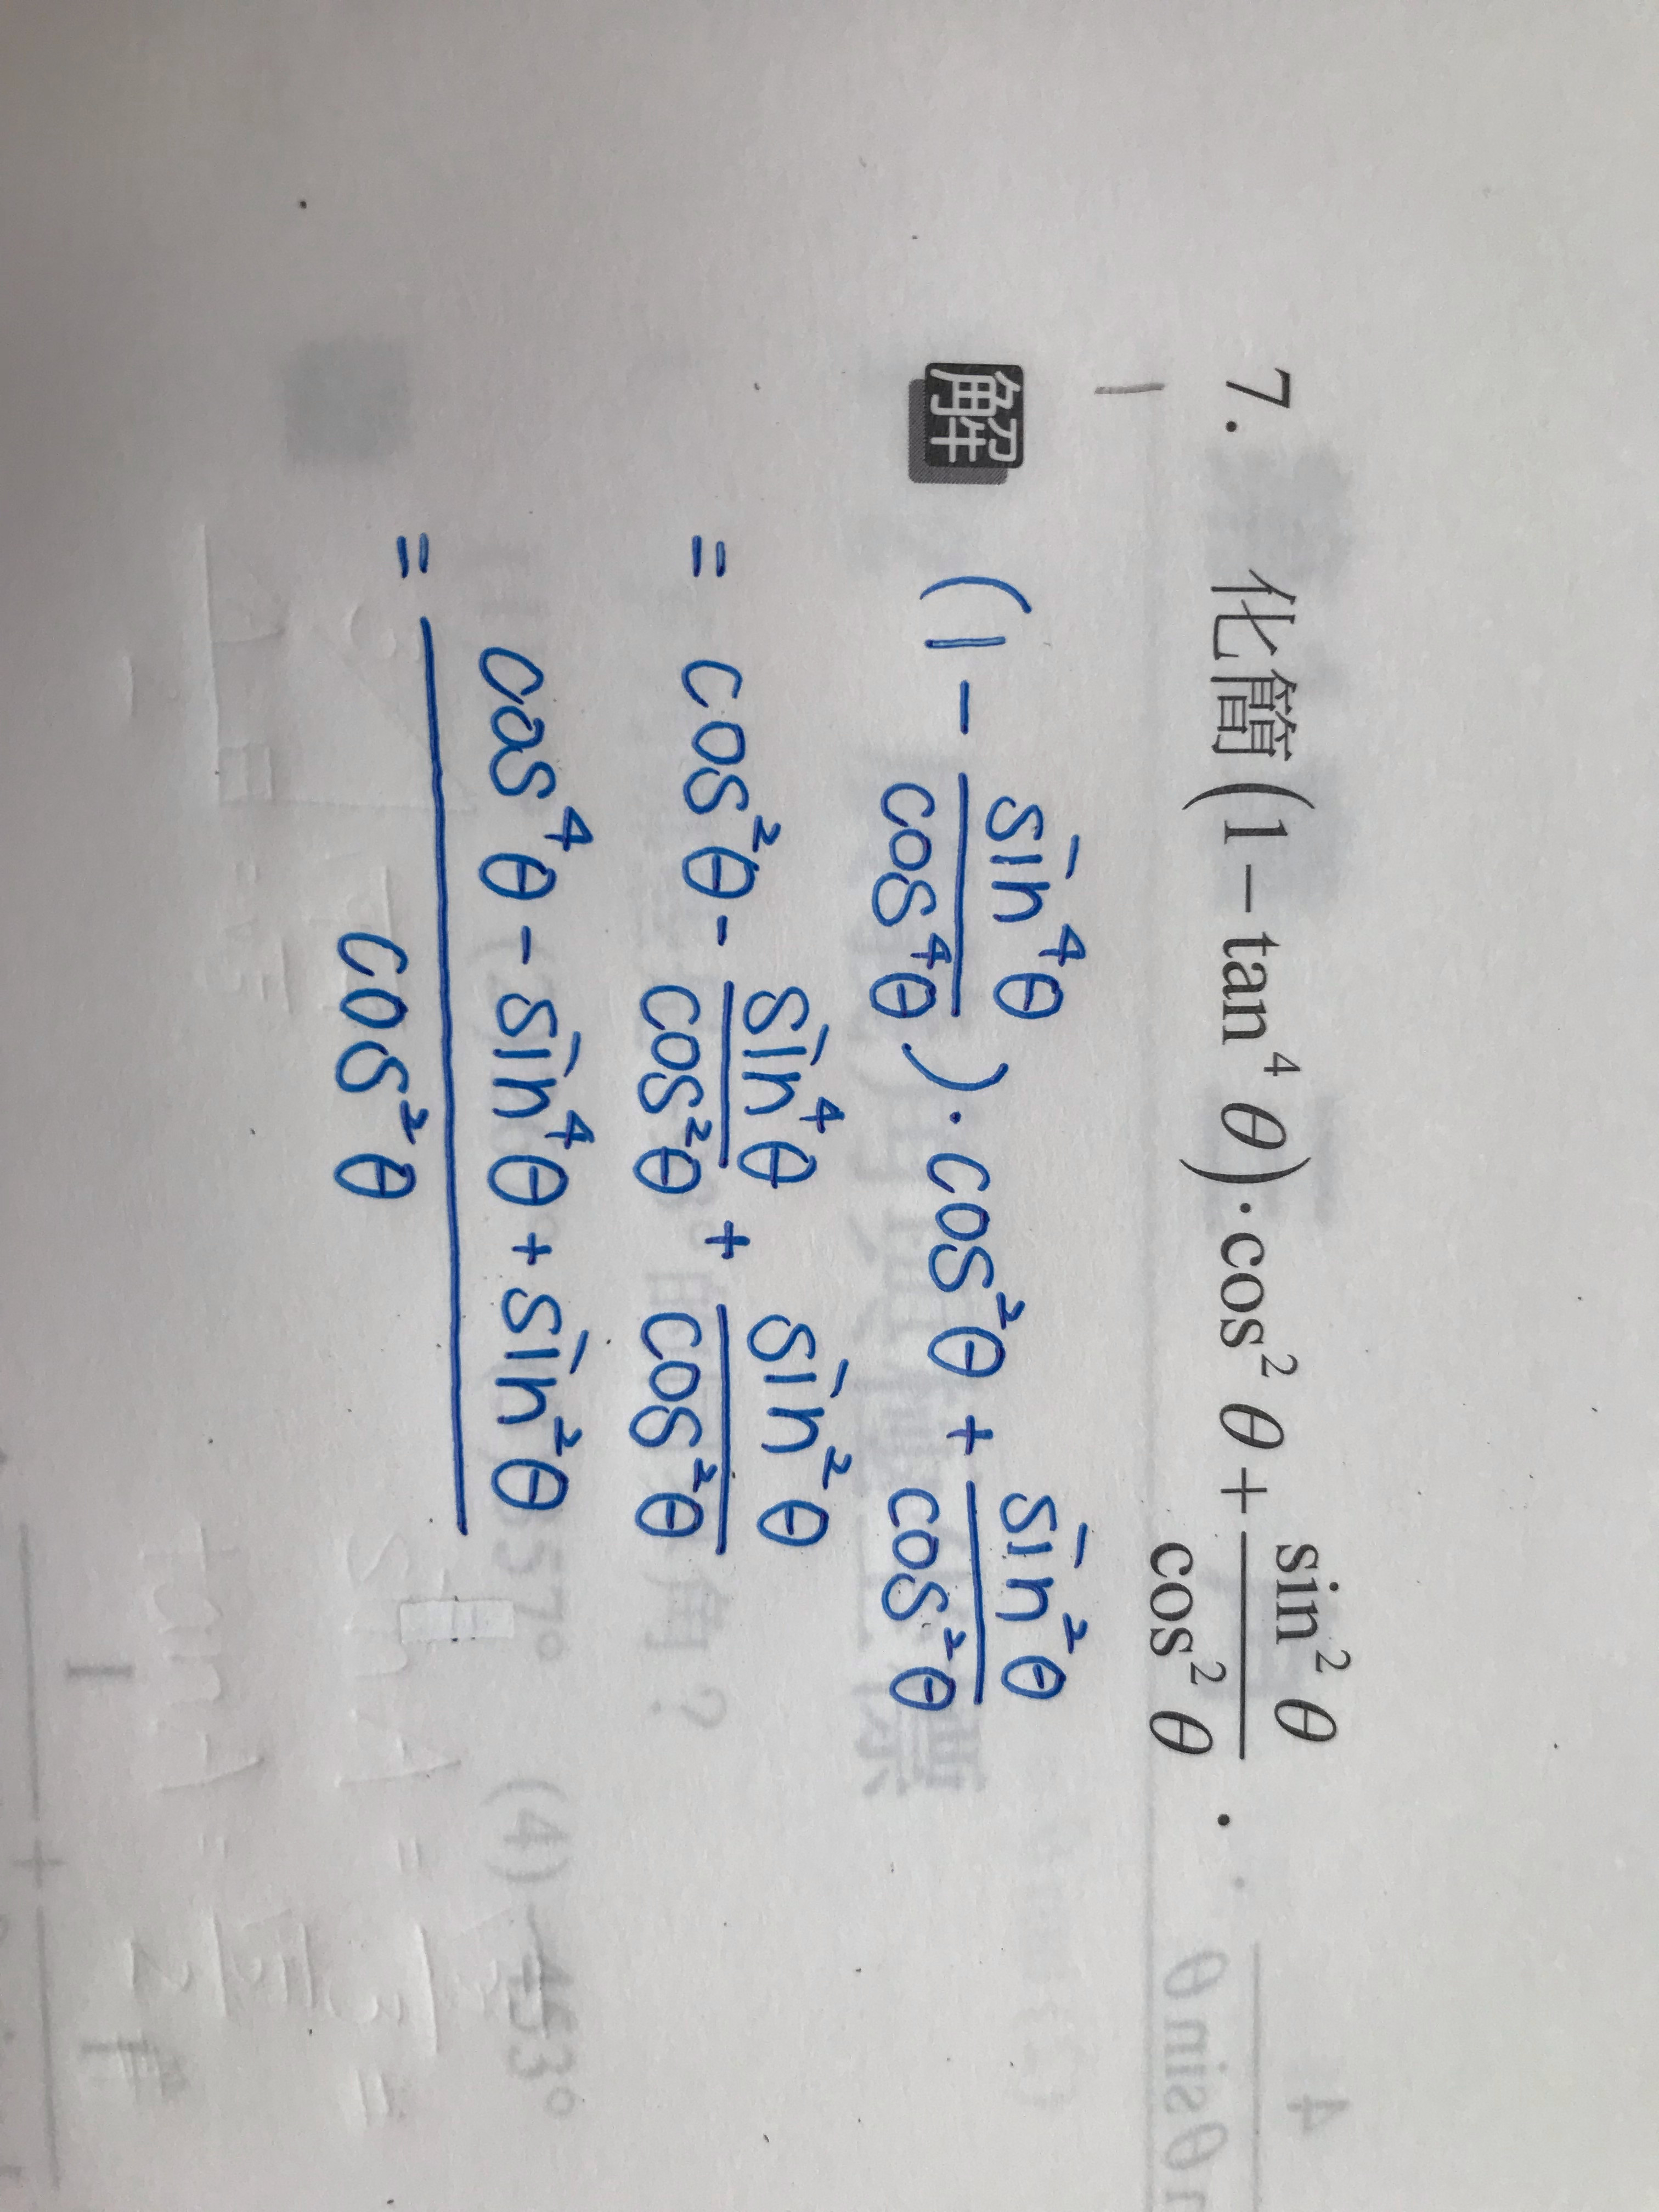 7. 化簡(1−tan⁴ θ)·cos² θ + sin² θ / cos² θ .
解 (1 - sin⁴θ / cos⁴θ)·cos²θ + sin²θ / cos²θ
= cos²θ - sin⁴θ / cos²θ + sin²θ / cos²θ
= cos⁴θ - sin⁴θ + sin²θ / cos²θ